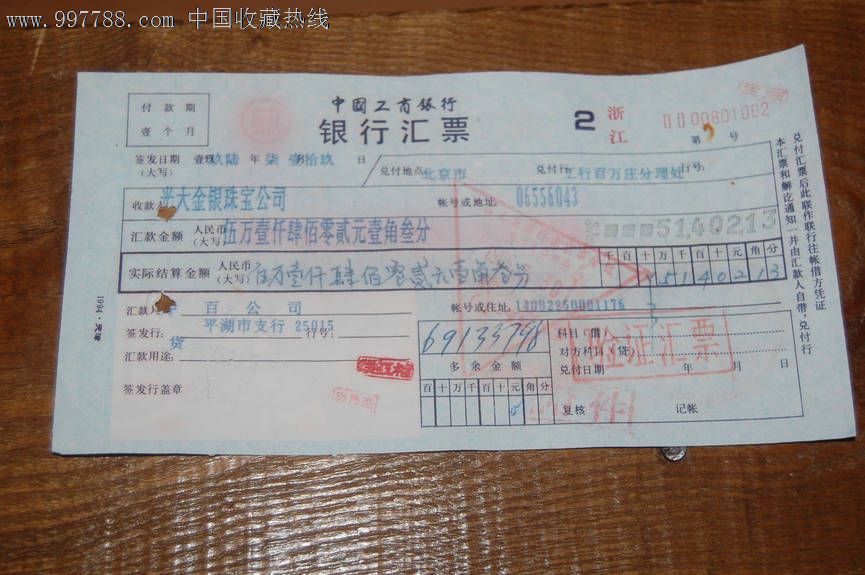 www.997788.com 中国收藏热线
付款期
壹个月
中國工商銀行
银行汇票
2
浙江
00801062
号
签发日期 壹玖玖陆 年 柒 壹拾玖 日
(大写)
兑付地点 北京市 兑付行 工行百万庄分理处
收款人 光大金银珠宝公司 帐号或地址 06556043
汇款金额 人民币(大写) 伍万壹仟肆佰零贰元壹角叁分 51402.13
实际结算金额 人民币(大写) 伍万壹仟肆佰零贰元壹角叁分
千百十万千百十元角分
5140213
汇款人 百公司 帐号或住址 14092850001176
签发行: 平湖市支行 25015 行号:
汇款用途: 货
签发行盖章
69133798
多余金额
百十万千百十元角分
科目(借)
对方科目(贷)
兑付日期 年 月 日
复核 记帐
验证汇票
兑付汇票后此联作联行往帐借方凭证
本汇票和解讫通知一并由汇款人自带,兑付行
1994